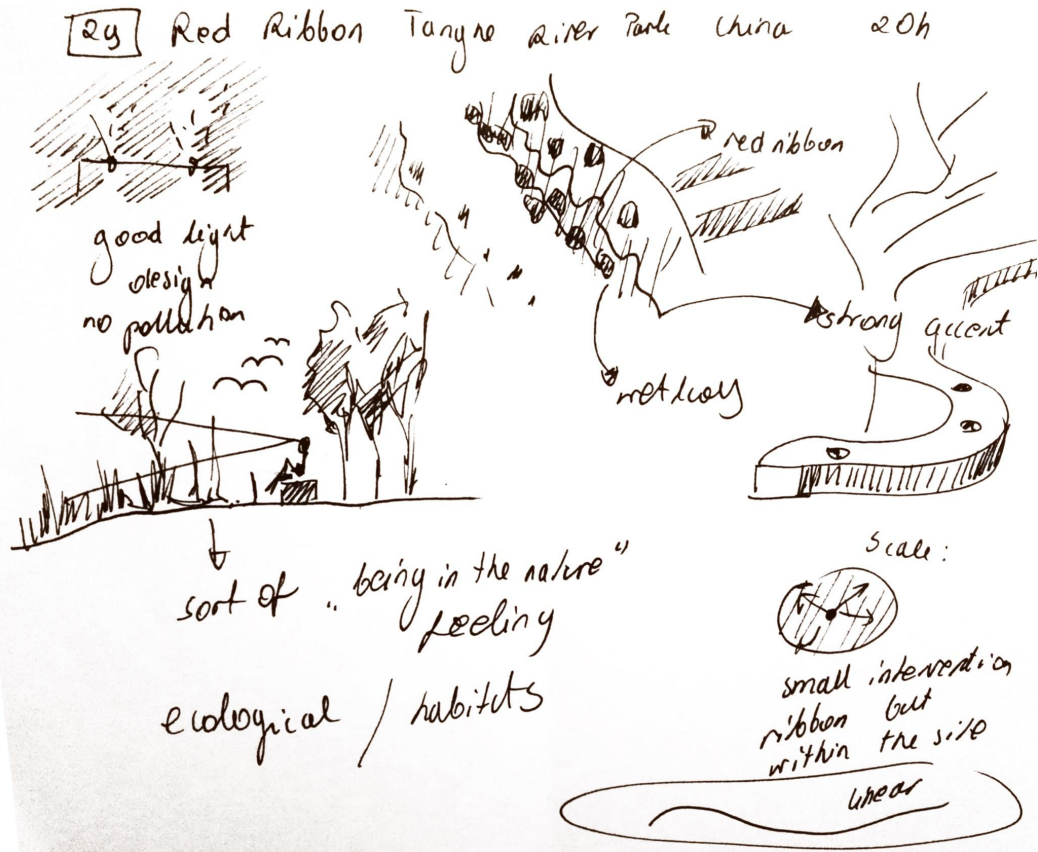 29 Red Ribbon Tanghe River Park China 20h
good light
design
no pollution
red ribbon
strong accent
sort of „being in the nature“
feeling
ecological / habitats
Scale:
small intervention
ribbon but
within the site
linear